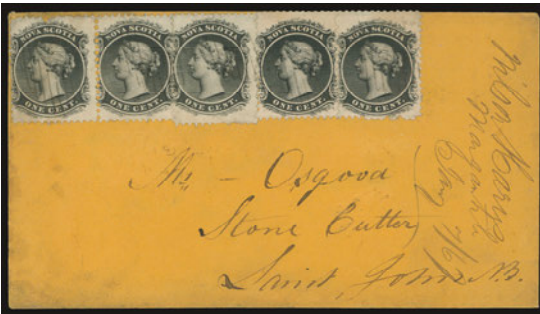 NOVA SCOTIA
ONE CENT.
NOVA SCOTIA
ONE CENT.
NOVA SCOTIA
ONE CENT.
NOVA SCOTIA
ONE CENT.
NOVA SCOTIA
ONE CENT.
Mr - Osgood
Stone Cutter
Saint John N.B.